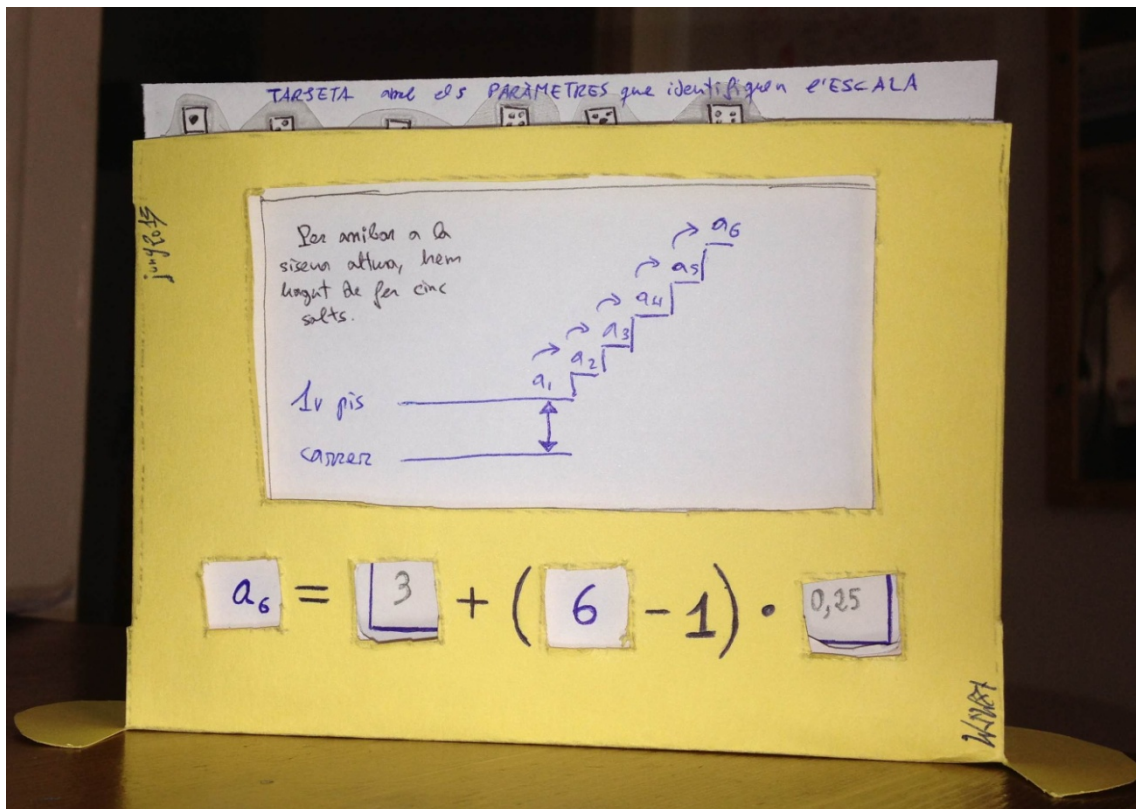 TARJETA amb els PARÀMETRES que identifiquen l'ESCALA
Per arribar a la
sisena altura, hem
hagut de fer cinc
salts.
a₁ a₂ a₃ a₄ a₅ a₆
1r pis
carrer
a₆ = 3 + ( 6 - 1 ) • 0,25